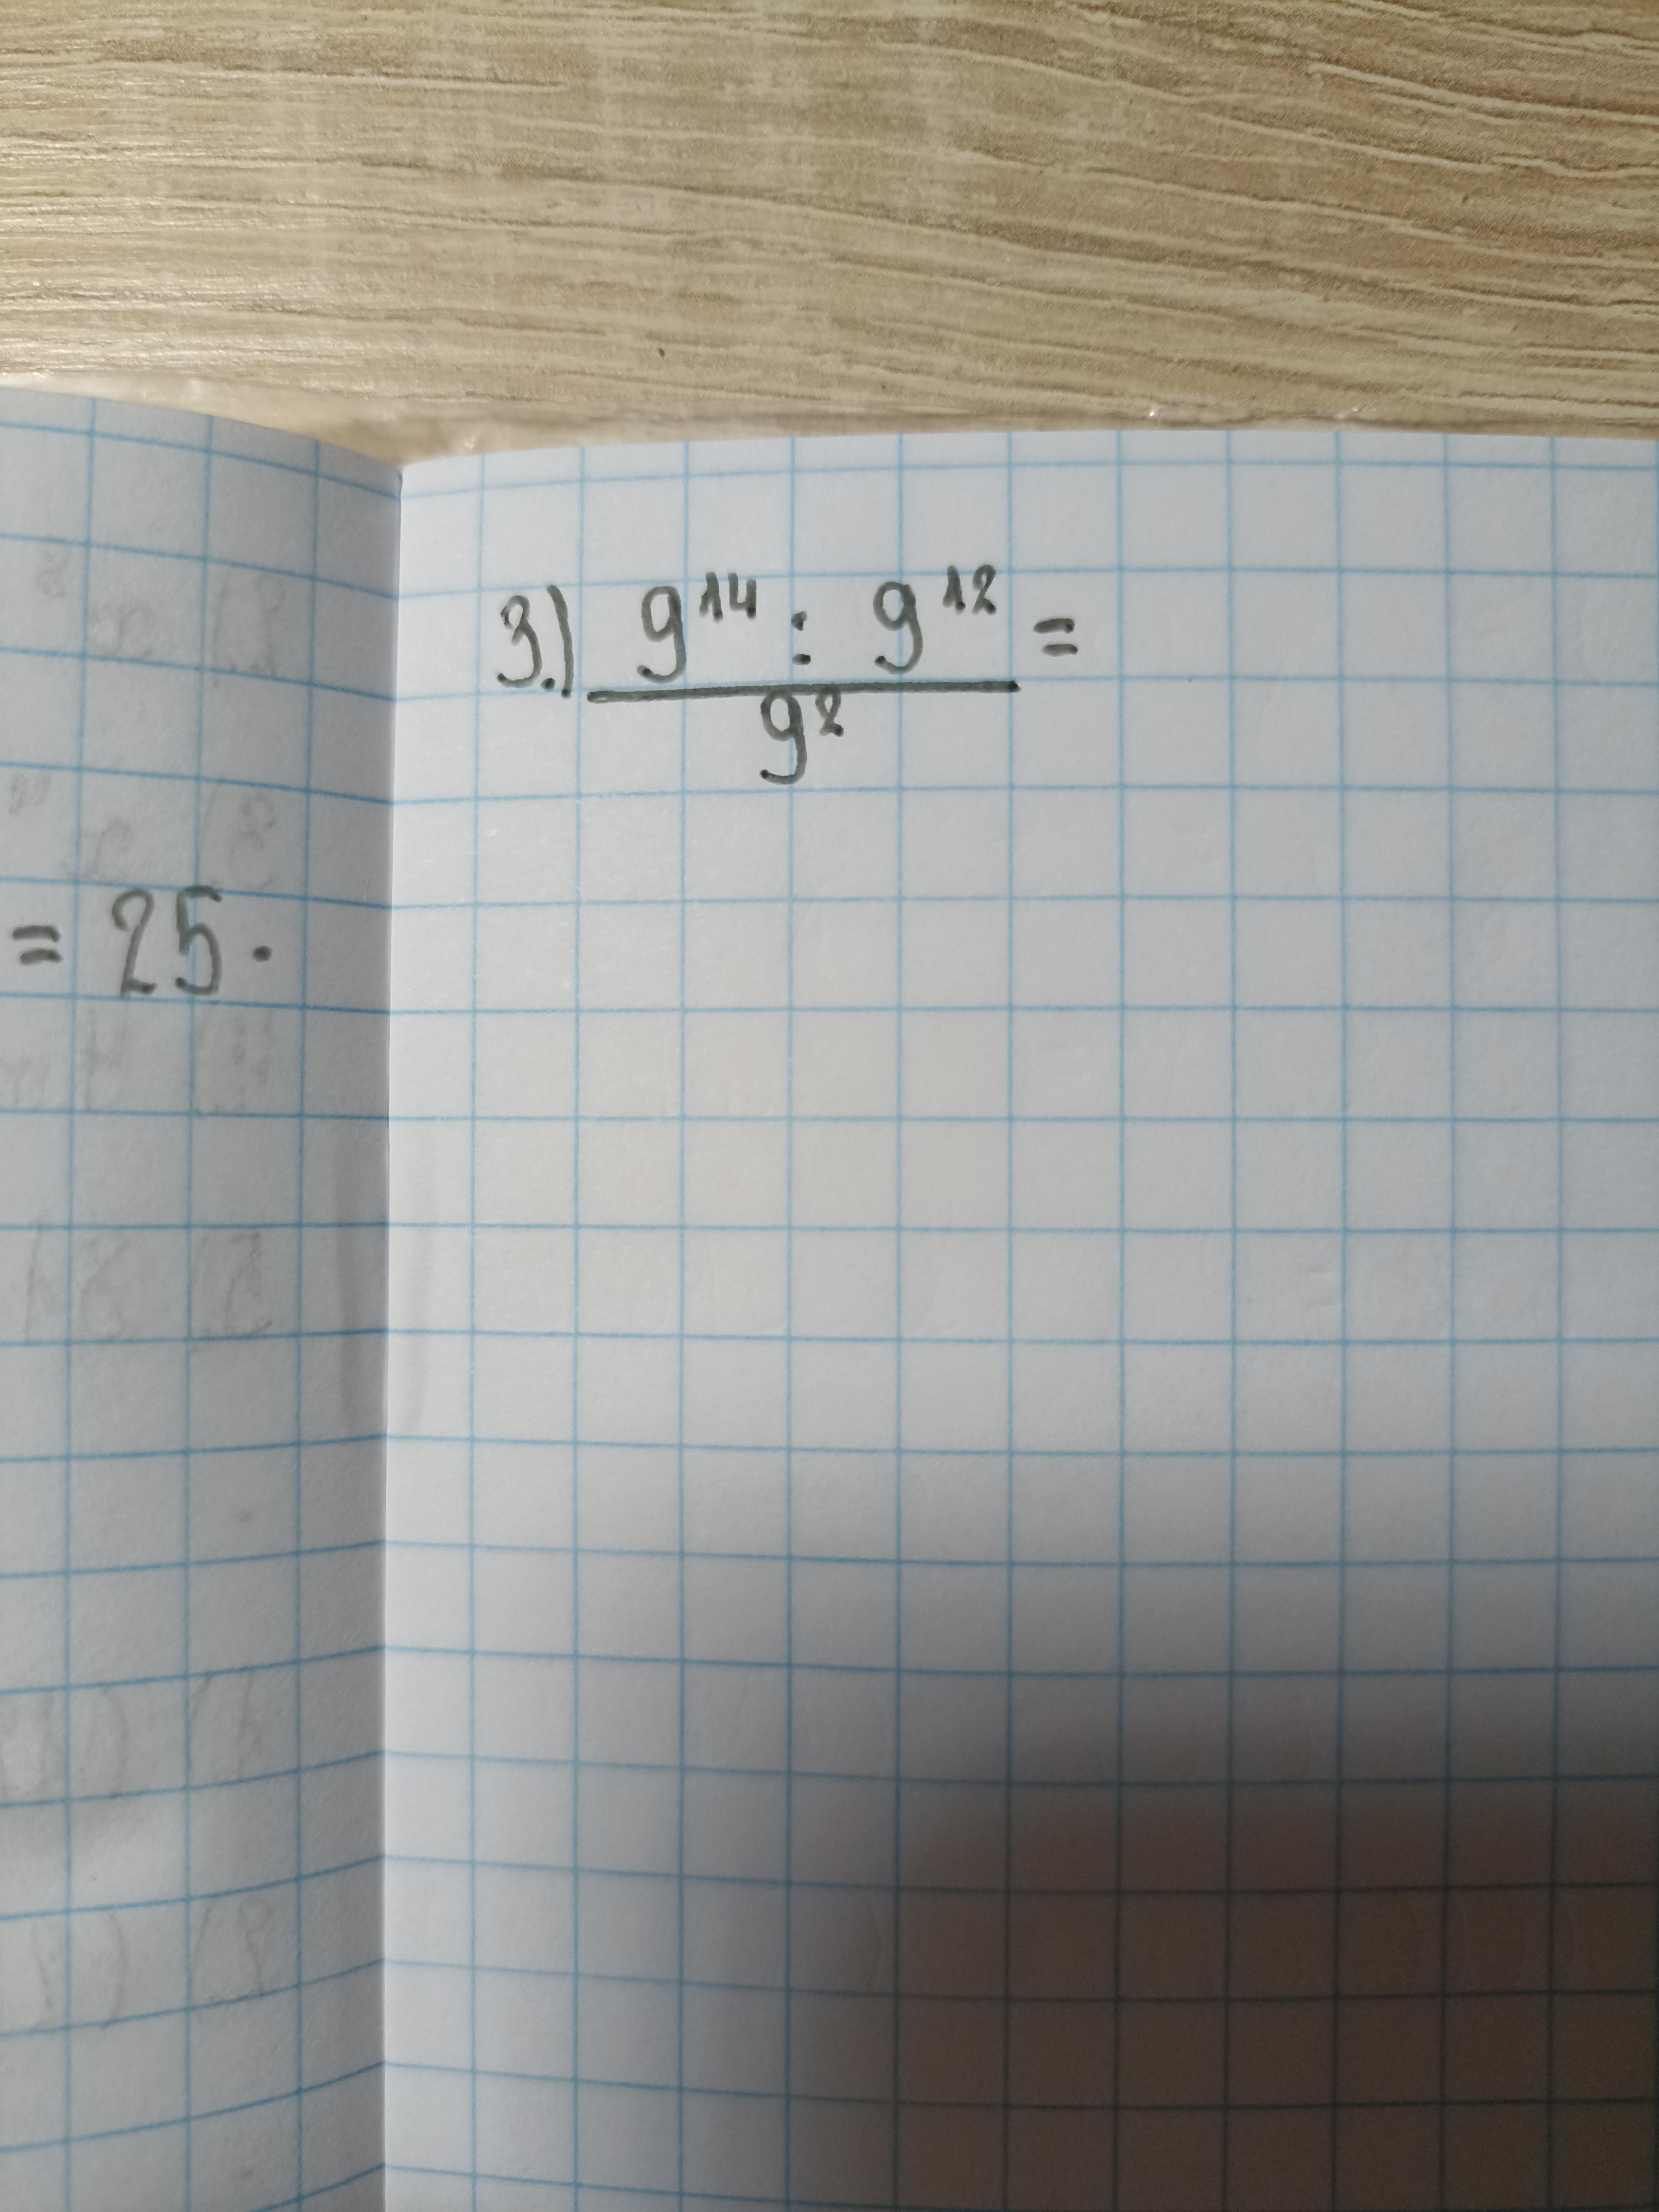 = 25 ·
3.) 9¹⁴ : 9¹² =
9²